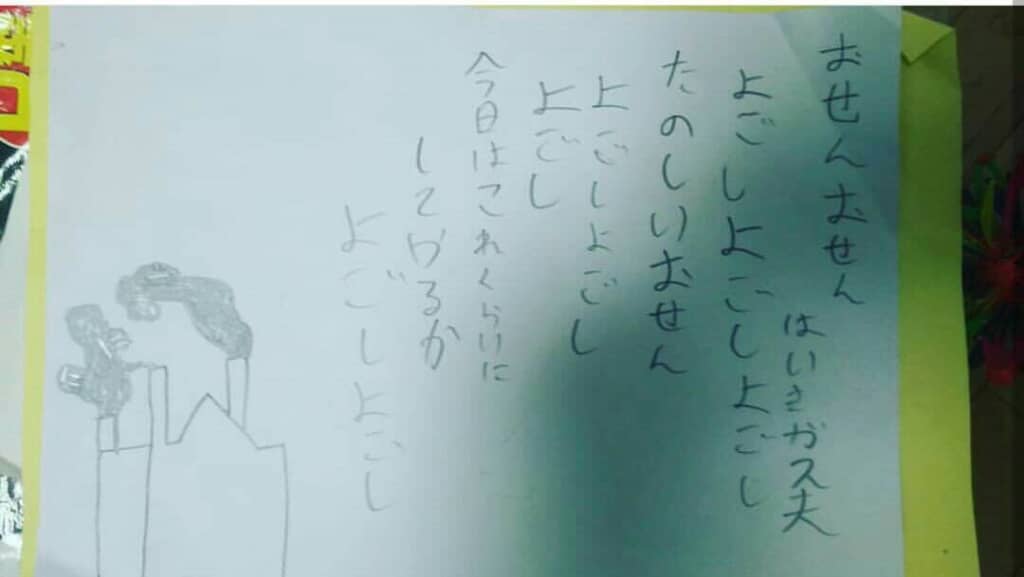 おせんおせん
はいきガス夫
よごしよごしよごし
たのしいおせん
よごしよごし
よごし
今日はこれくらいに
してやるか
よごしよごし